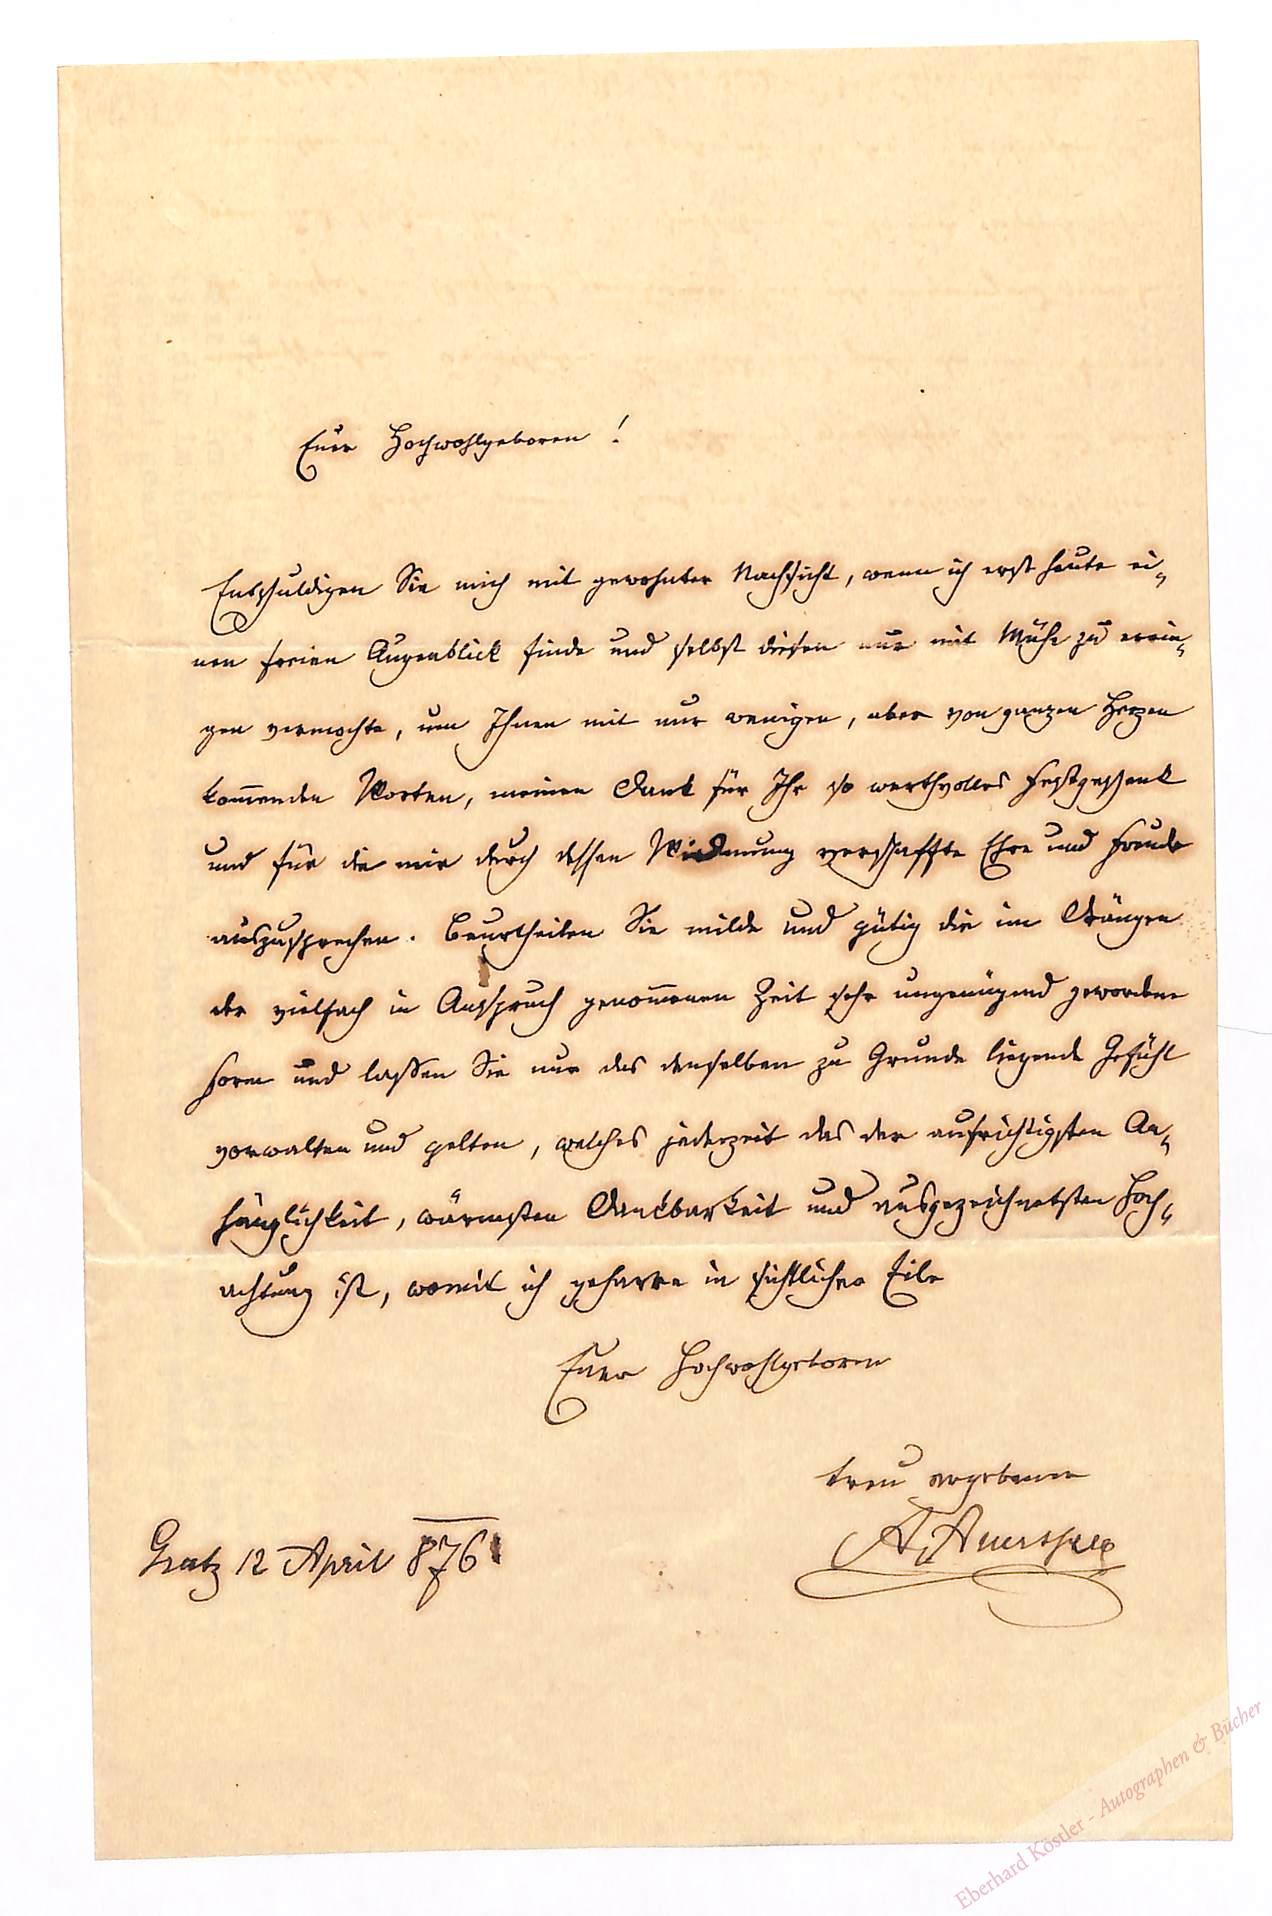 Euer Hochwohlgeboren!
Entschuldigen Sie mich mit gewohnter Nachsicht, wenn ich erst heute ei-
nen freien Augenblick finde und selbst diesen nur mit Mühe zu errin-
gen vermochte, um Ihnen mit nur wenigen, aber von ganzen Herzen
kom̅enden Worten, meinen Dank für Ihr so werthvolles Festgeschenk
und für die mir durch dessen Widmung verschaffte Ehre und Freude
auszusprechen. Beurtheilen Sie milde und gütig die im Drängen
der vielfach in Anspruch genom̅enen Zeit sehr ungenügend gewordene
Form und lassen Sie nur das derselben zu Grunde liegende Gefühl
vorwalten und gelten, welches jederzeit das der aufrichtigsten An-
hänglichkeit, wärmsten Dankbarkeit und ausgezeichnetsten Hoch-
achtung ist, womit ich geharre in sichtlicher Eile
Euer Hochwohlgeboren
treu ergebener
A. Auersperg
Gratz 12 April 876
Eberhard Köstler - Autographen & Bücher